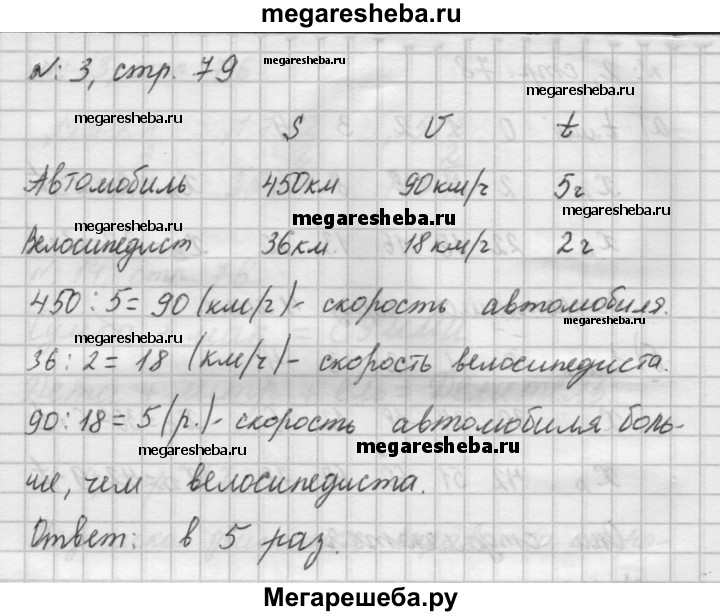 megaresheba.ru
№: 3, стр. 79 megaresheba.ru
megaresheba.ru
megaresheba.ru
S V t
Автомобиль 450км 90км/ч 5ч
megaresheba.ru megaresheba.ru
Велосипедист. 36км 18км/ч 2ч
megaresheba.ru
450 : 5 = 90 (км/ч) - скорость автомобиля.
megaresheba.ru megaresheba.ru
36 : 2 = 18 (км/ч) - скорость велосипедиста.
90 : 18 = 5 (р.) - скорость автомобиля боль-
megaresheba.ru megaresheba.ru
ше, чем велосипедиста.
Ответ: в 5 раз.
Мегарешеба.ру